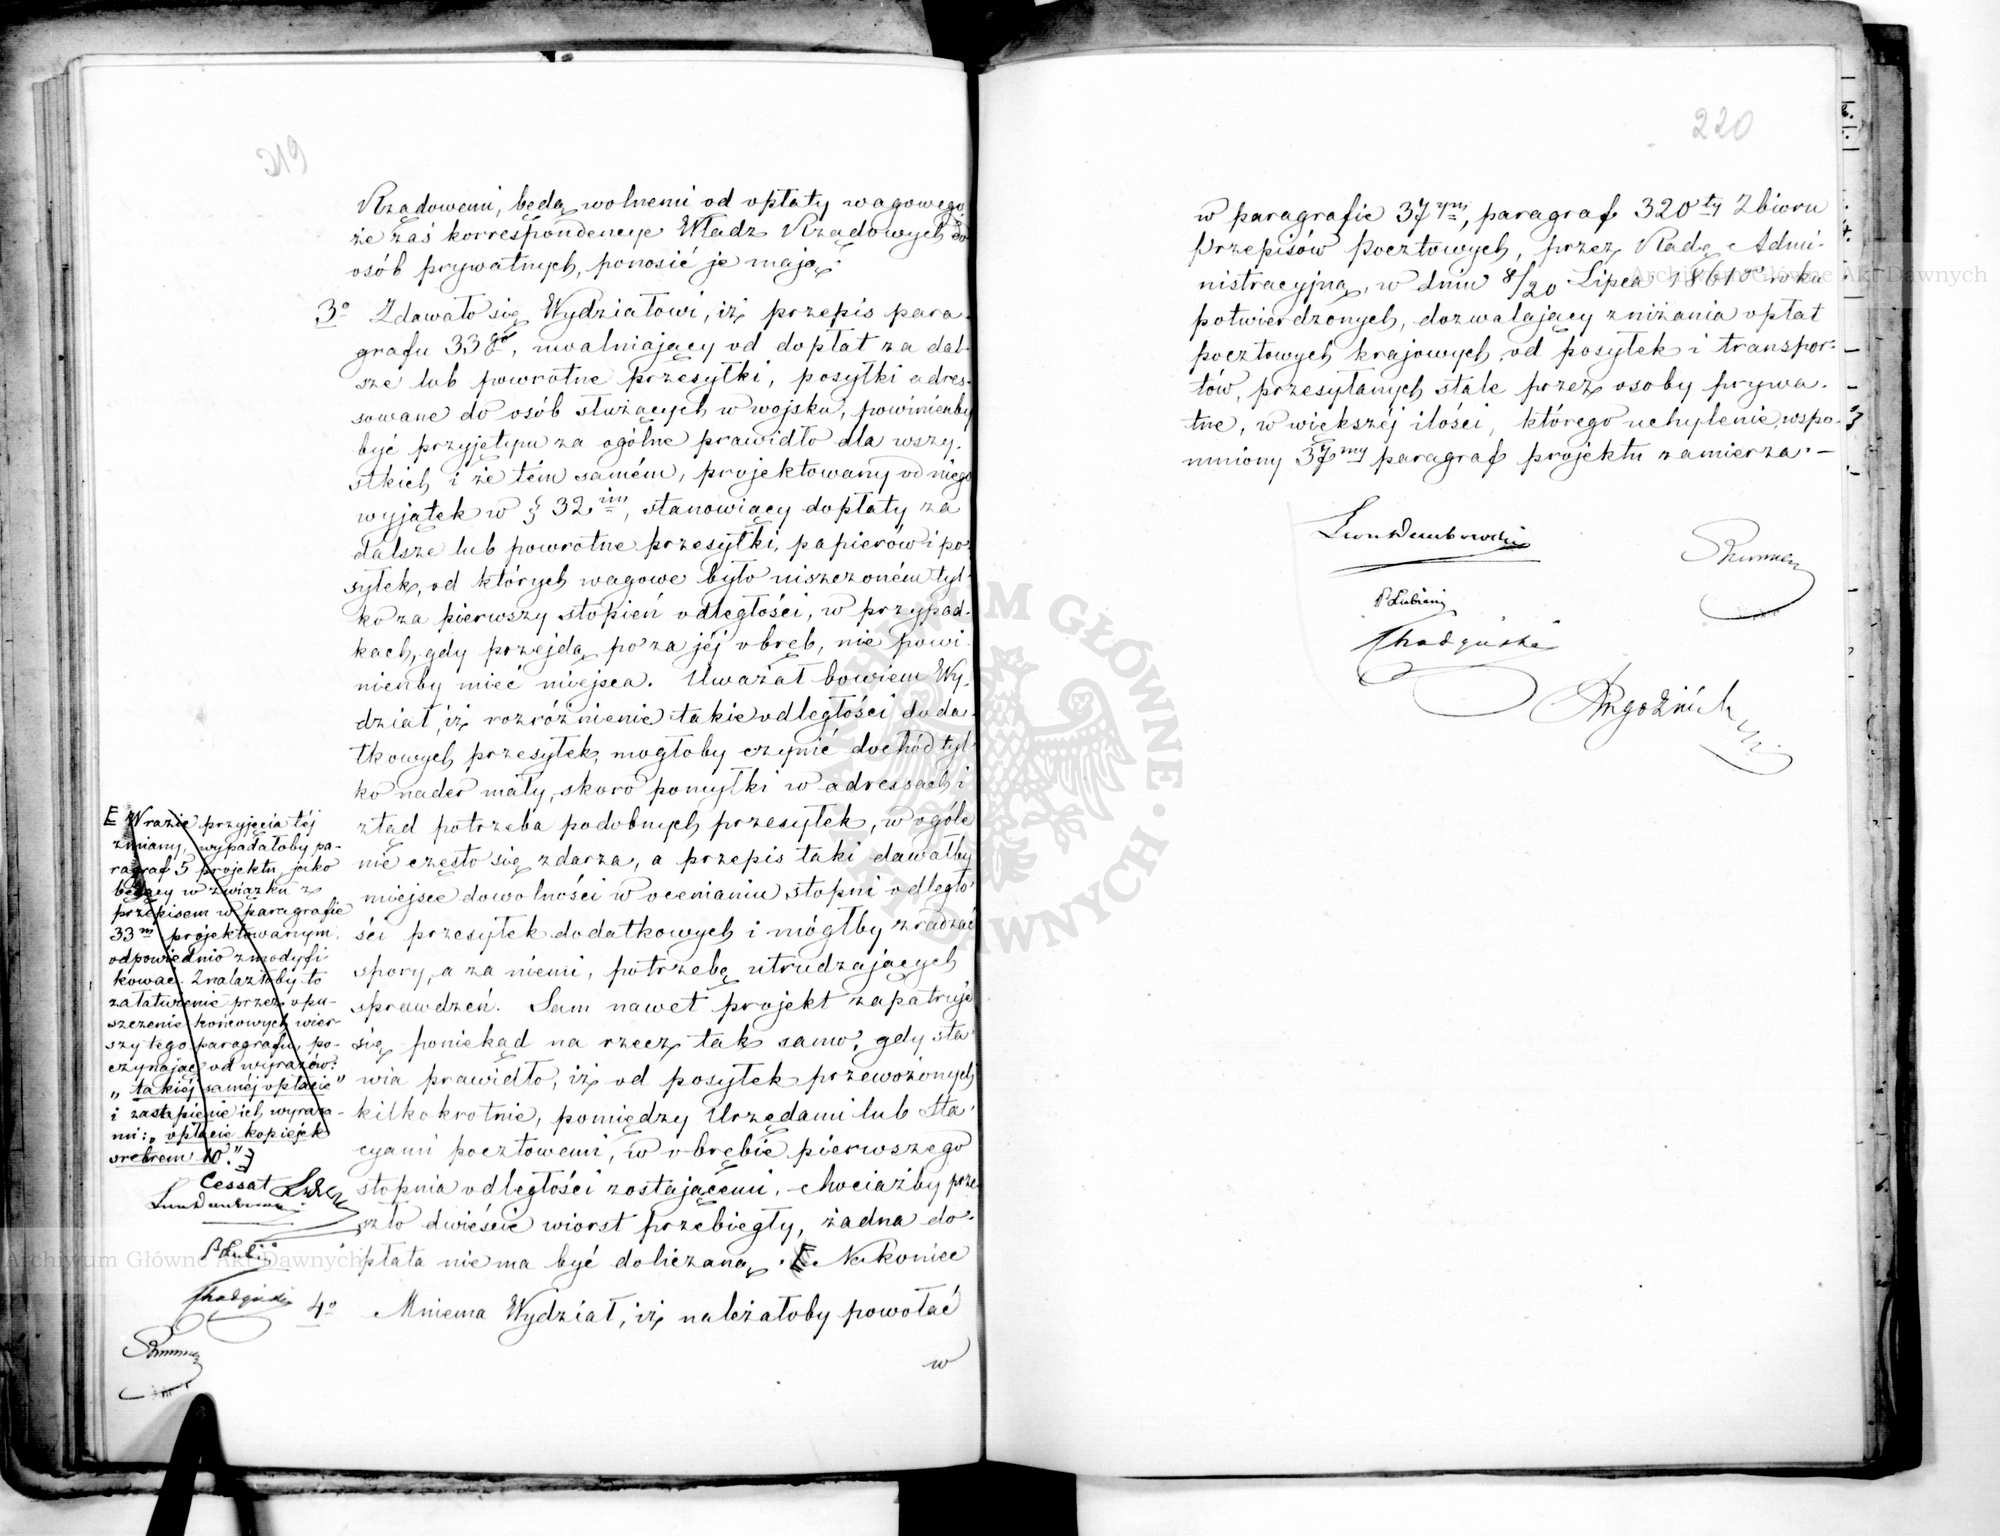 219
Rządowemi, będą wolnemi od opłaty wagowego,
że zaś korrespondencye Władz Rządowych do
osób prywatnych, ponosić je mają.
3o Zdawało się Wydziałowi, iż przepis para-
grafu 33go, uwalniający od dopłat za dal-
sze lub powrotne przesyłki, posyłki adres-
sowane do osób służących w wojsku, powinienby
być przyjętym za ogólne prawidło dla wszy-
stkich i że tem samém, projektowany od niego
wyjątek w § 32im, stanowiący dopłaty za
dalsze lub powrotne przesyłki, papierów i po-
syłek, od których wagowe było uiszczoném tyl-
ko za pierwszy stopień odległości, w przypad-
kach, gdy przejdą po za jéj obręb, nie powi-
nienby mieć miejsca. Uważał bowiem Wy-
dział, iż rozróżnienie takie odległości doda-
tkowych przesyłek, mogłoby czynić dochód tyl-
ko nader mały, skoro pomyłki w adressach i
ztąd potrzeba podobnych przesyłek, w ogóle
nie często się zdarza, a przepis taki dawałby
miejsce dowolności w ocenianiu stopni odległo-
ści przesyłek dodatkowych i mógłby zradzać
spory, a za niemi, potrzebę utrudzających
sprawdzeń. Sam nawet projekt zapatruje
się poniekąd na rzecz tak samo, gdy sta-
wia prawidło, iż od posyłek przewożonych
kilkokrotnie, pomiędzy Urzędami lub sta-
cyami pocztowemi, w obrębie pierwszego
stopnia odległości zostającemi, chociażby prze-
szło dwieście wiorst przebiegły, żadna do-
płata nie ma być doliczaną. E Nakoniec
4o Mniema Wydział, iż należałoby powołać
w
E W razie przyjęcia téj
zmiany, wypadałoby pa-
ragraf 5 projektu, jako
będący w związku z
przepisem w paragrafie
33m projektowanym
odpowiednio zmodyfi-
kować. Znalazłoby to
załatwienie przez opu-
szczenie końcowych wier-
szy tego paragrafu, po-
czynając od wyrazów:
"takiéj saméj opłacie"
i zastąpienie ich wyraza-
mi: "opłacie kopiejek
srebrem 10."
Cessat
Leon Dembowski
PŁubień
220
w paragrafie 37ym, paragraf 320ty Zbioru
Przepisów pocztowych, przez Radę Admi-
nistracyjną, w dniu 8/20 Lipca 1861go roku
potwierdzonych, dozwalający zniżania opłat
pocztowych krajowych od posyłek i transpor-
tów, przesyłanych stale przez osoby prywa-
tne, w większéj ilości, którego uchylenie, wspo-
mniony 37my paragraf projektu zamierza. —
Leon Dembowski
PŁubień
ARCHIWUM GŁÓWNE AKT DAWNYCH
Archiwum Główne Akt Dawnych
Archiwum Główne Akt Dawnych